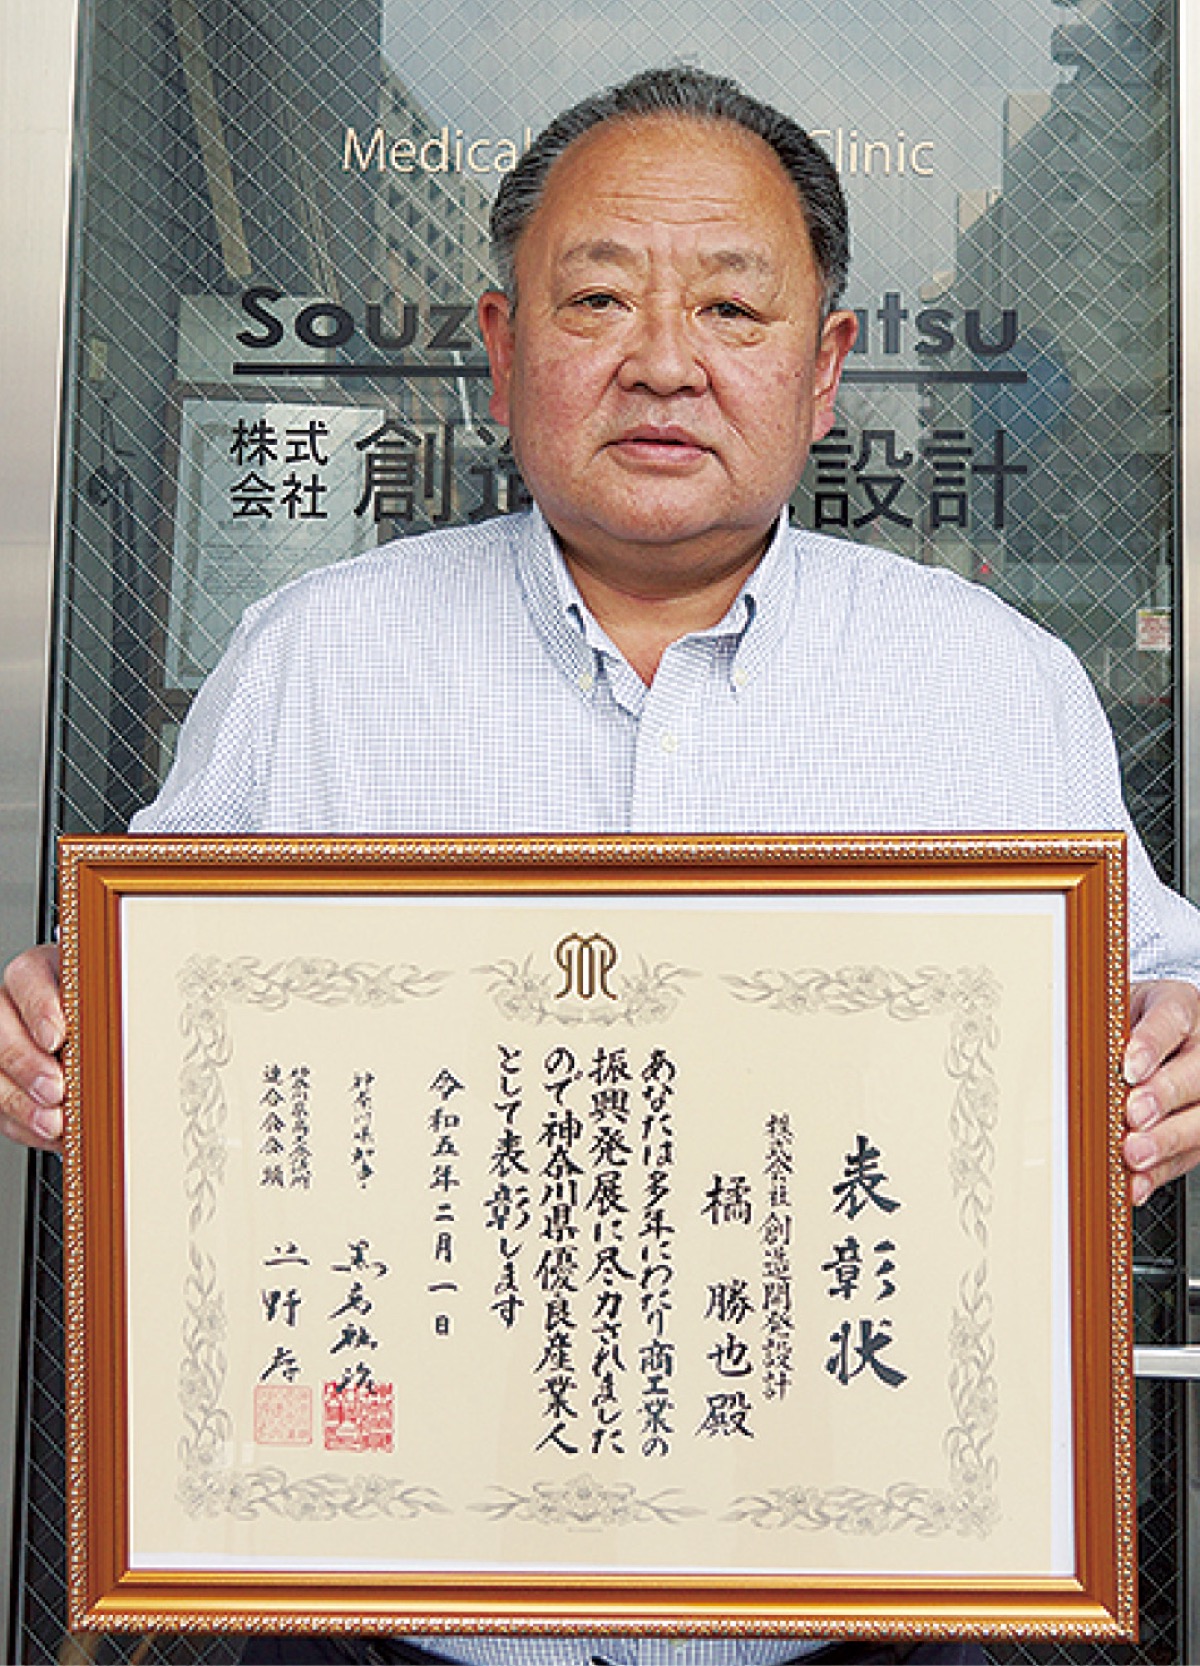 Medica
Clinic
Souz
atsu
株式
会社
創造
設計
表彰状
株式会社創造開発設計
橘 勝也殿
あなたは多年にわたり商工業の
振興発展に尽力されました
ので神奈川県優良産業人
として表彰します
令和五年二月一日
神奈川県知事 黒岩祐治
神奈川県商工会議所
連合会会頭 上野孝